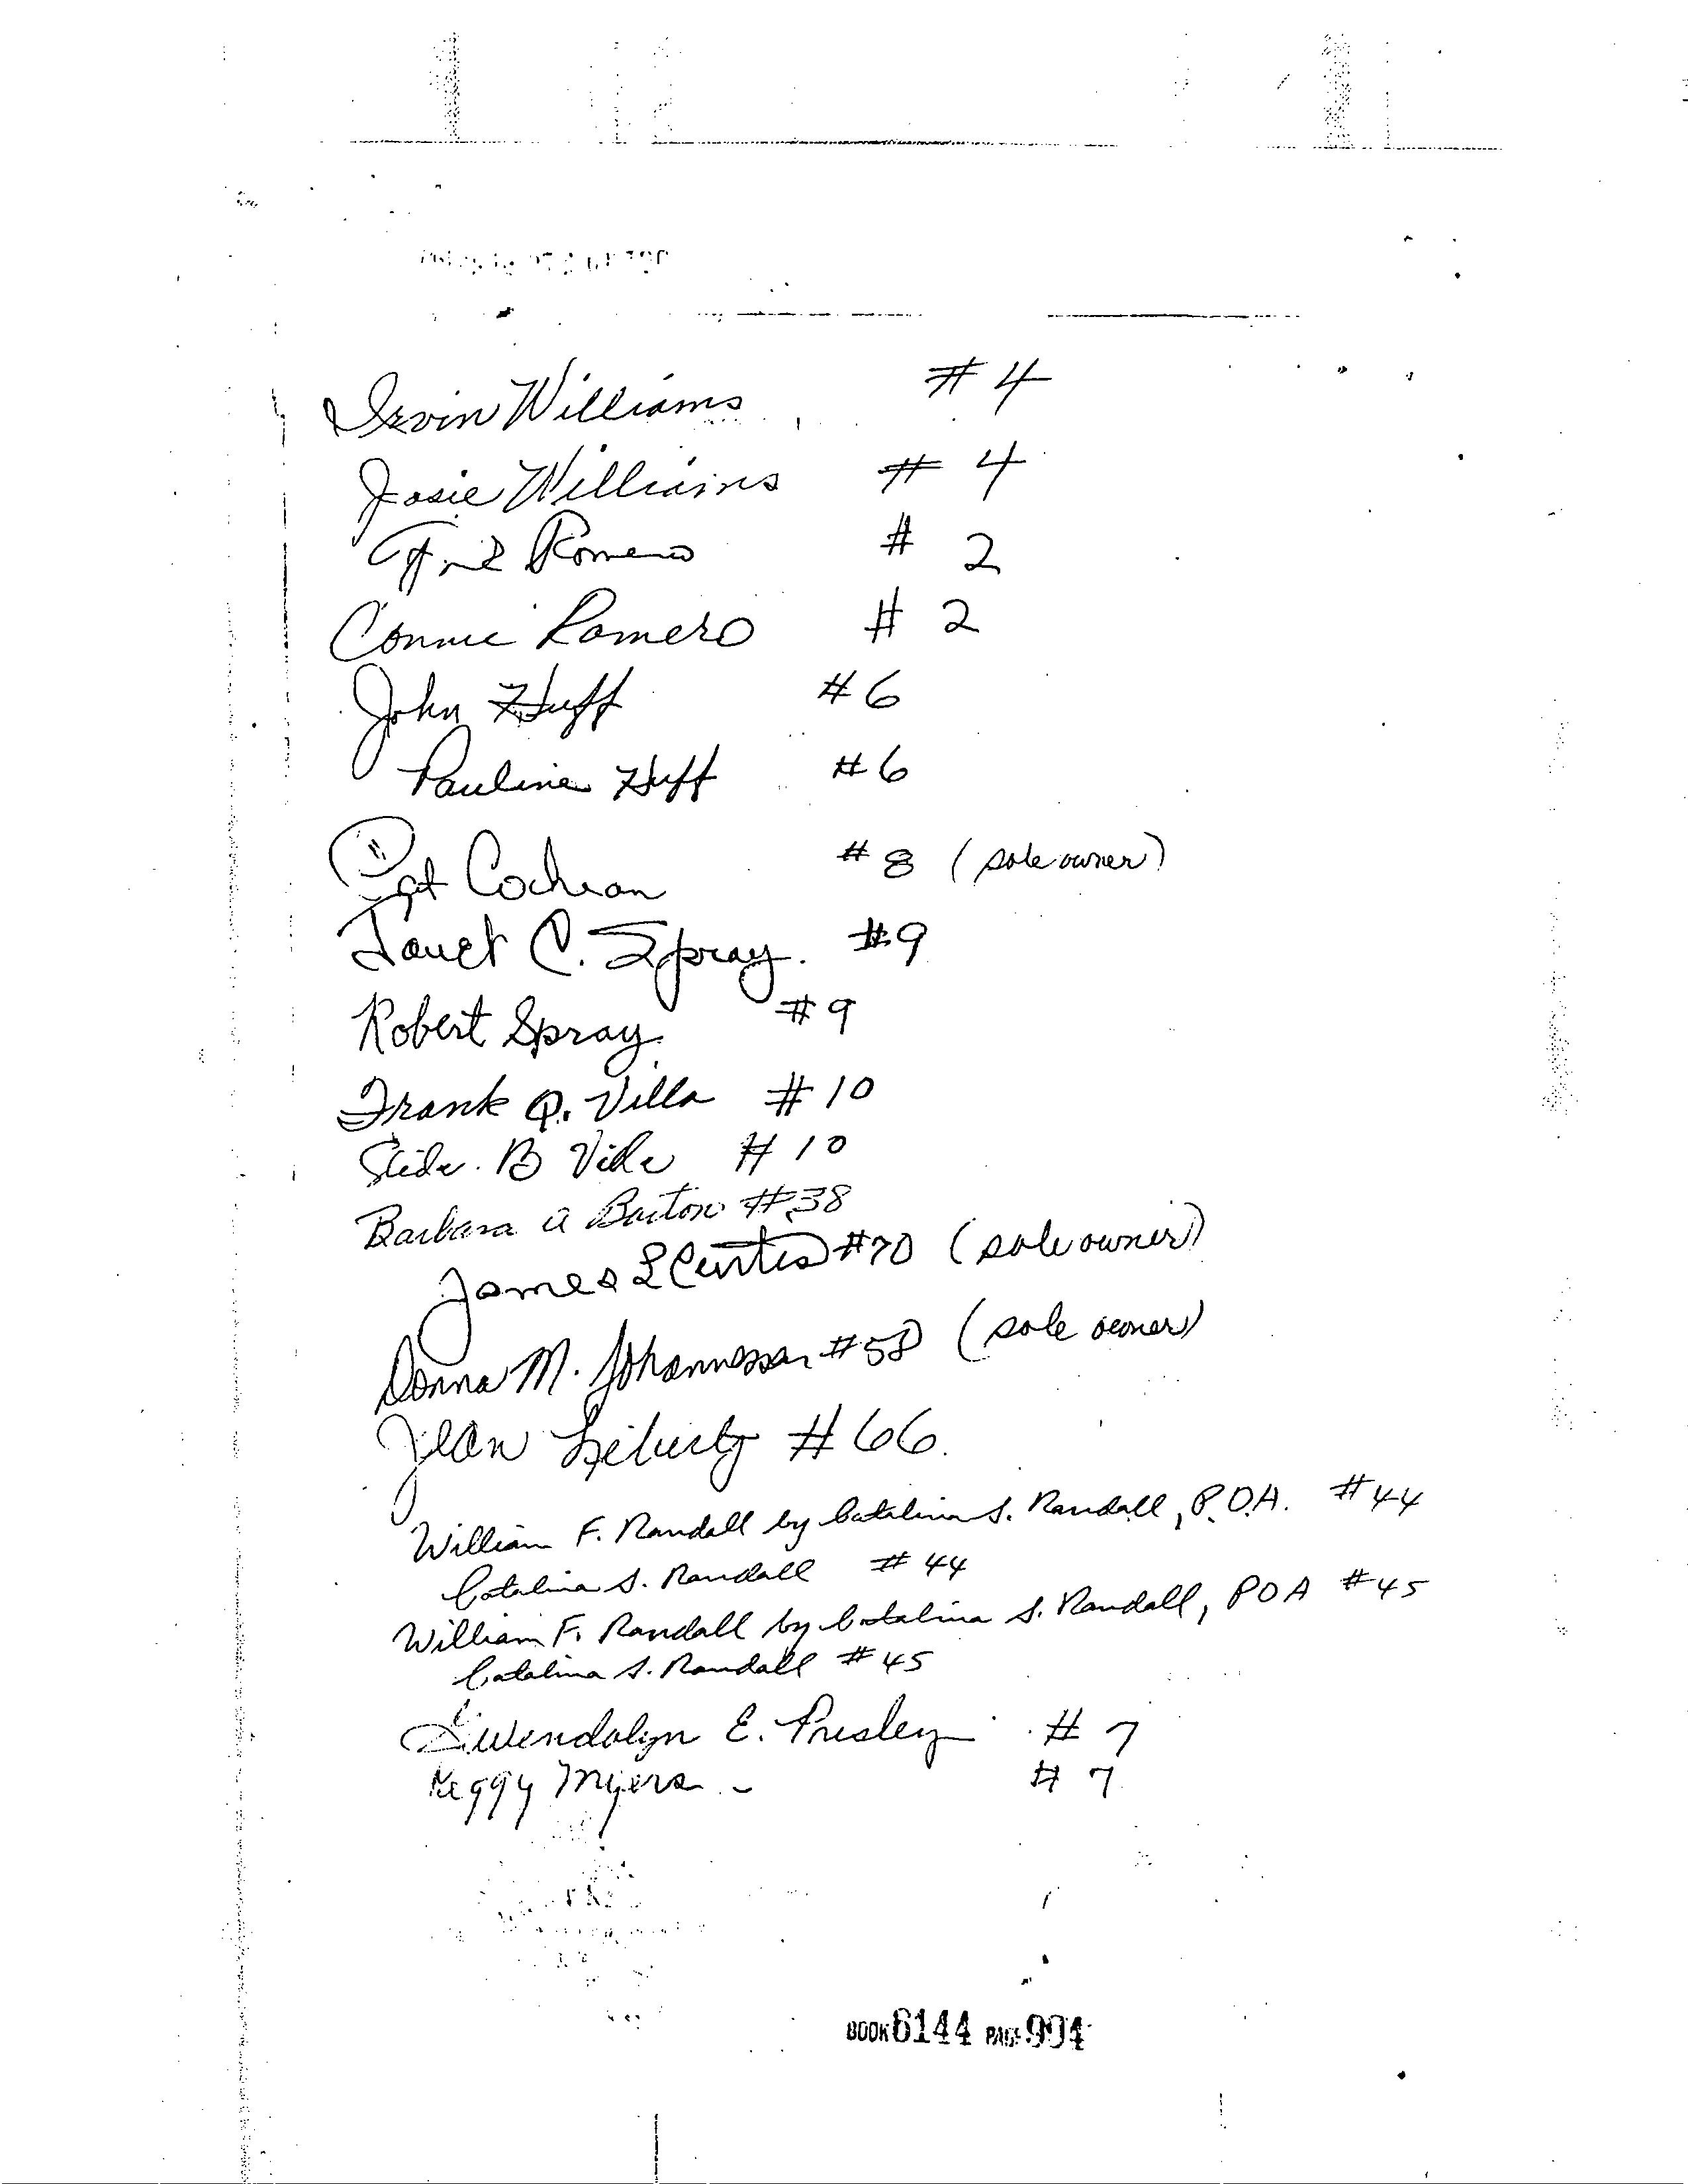 Irvin Williams #4
Josie Williams # 4
Romero # 2
Connie Romero # 2
John Huff #6
Pauline Huff #6
Pat Cochran #8 (sole owner)
Janet C. Spray. #9
Robert Spray #9
Frank Q. Villa #10
B #10
Barbara A Barton #38
James L Curtis #70 (sole owner)
Donna M. Johannessen #58 (sole owner)
Jean #66
William F. Randall by Catalina S. Randall, P.O.A. #44
Catalina S. Randall #44
William F. Randall by Catalina S. Randall, POA #45
Catalina S. Randall #45
Gwendolyn E. Presley #7
Peggy Myers #7
BOOK 6144 PAGE 994